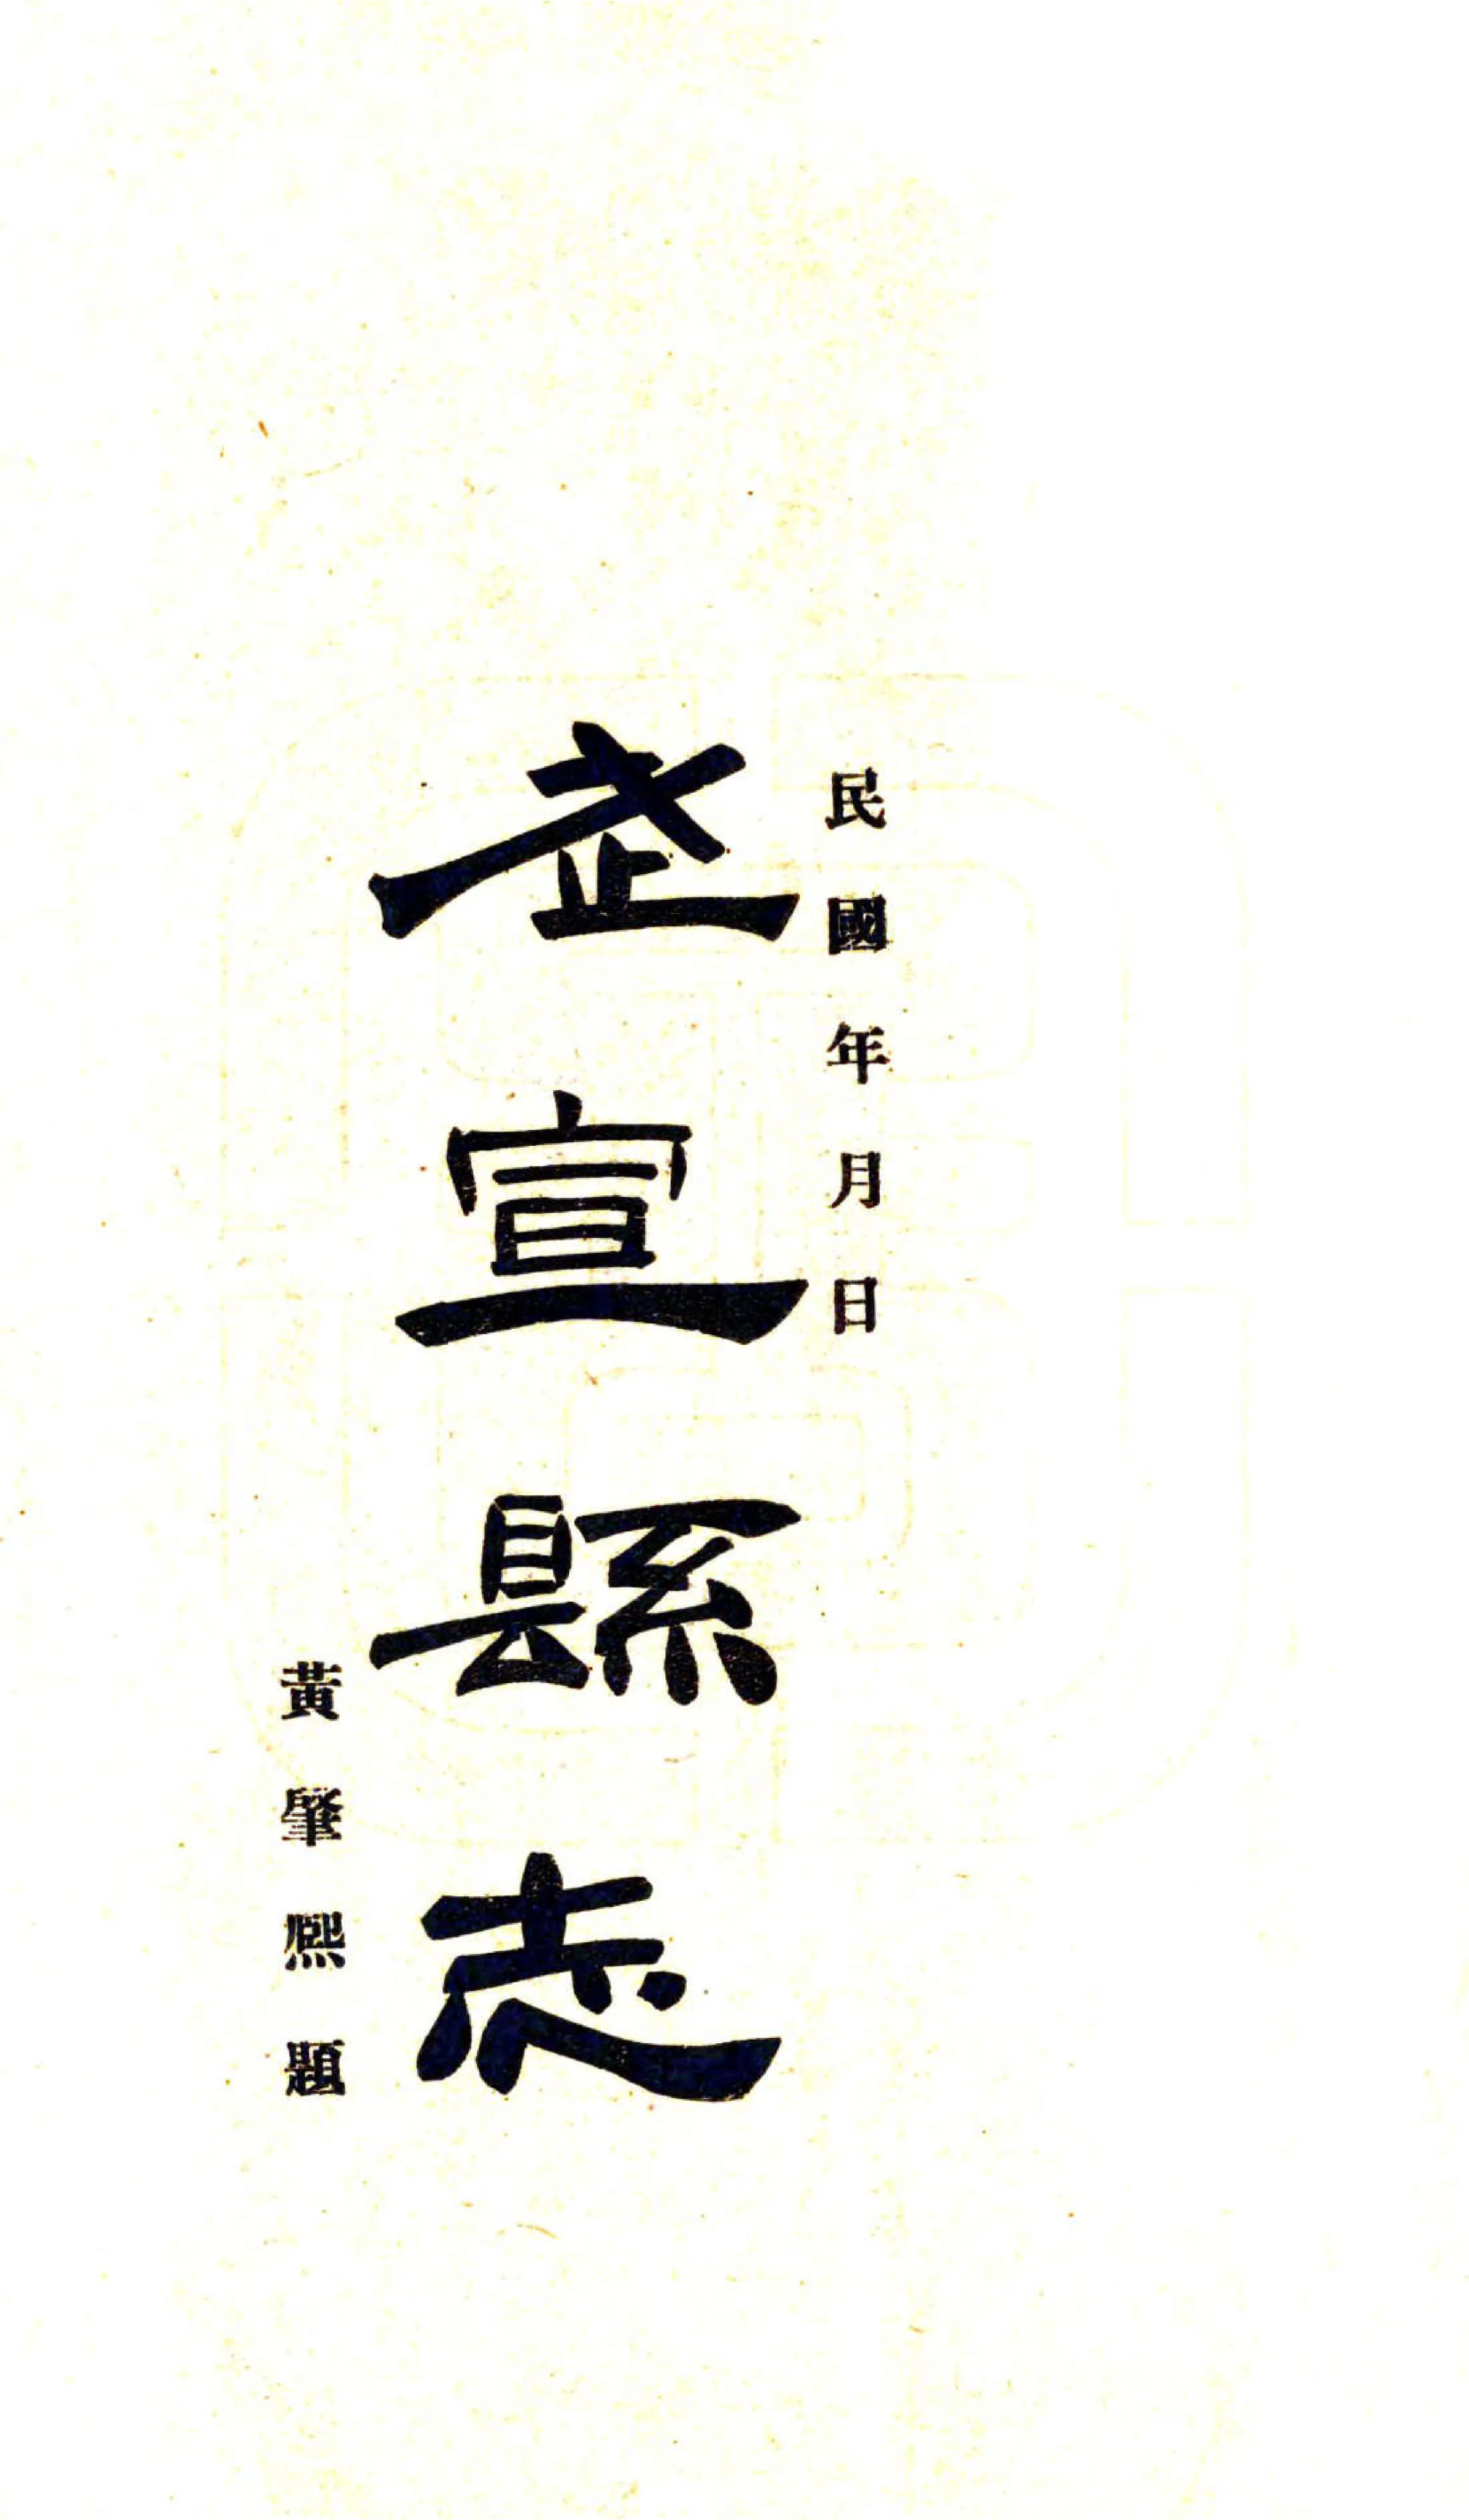 民國年月日
武宣縣志
黃肇熙題